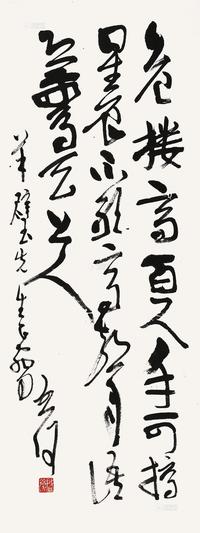 危楼高百尺手可摘
星辰不敢高聲語
恐驚天上人
璧先生